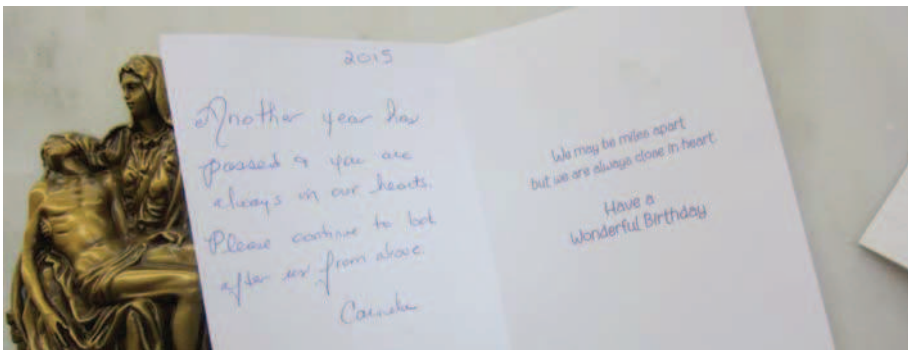 2015
Another year has
passed & you are
always in our hearts.
Please continue to
after us from above.
We may be miles apart
but we are always close in heart.
Have a
Wonderful Birthday